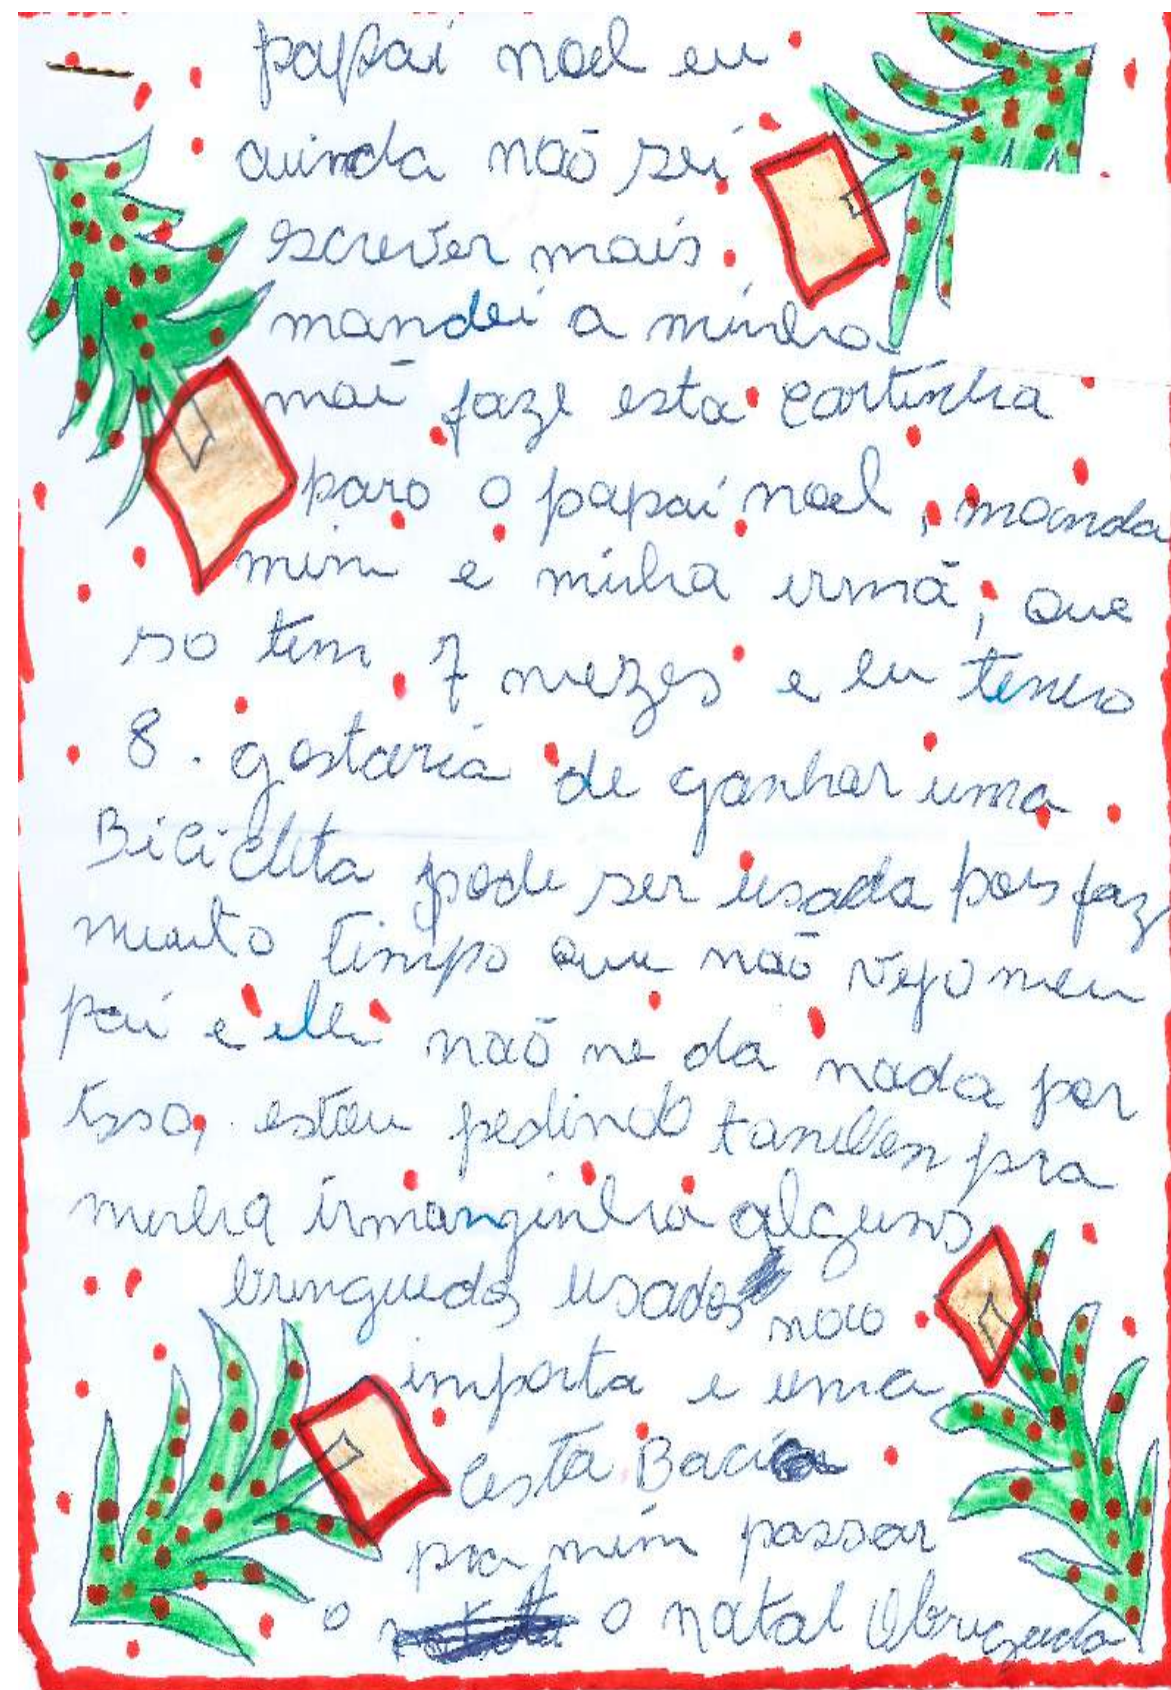 papai noel eu
ainda não sei
escrever mais
mandei a minha
mai faze esta cartinha
para o papai noel, manda
mim e minha irmã, que
so tem 7 mezes e eu tenho
8. gostaria de ganhar uma
Bicicleta pode ser usada pois faz
muito tempo que não vejo meu
pai e elle não me da nada por
isso, estou pedindo tambem pra
minha irmanginha alguns
bringuedos usados não
importa e uma
cesta Bacica
pra mim passar
o o natal Obrigada